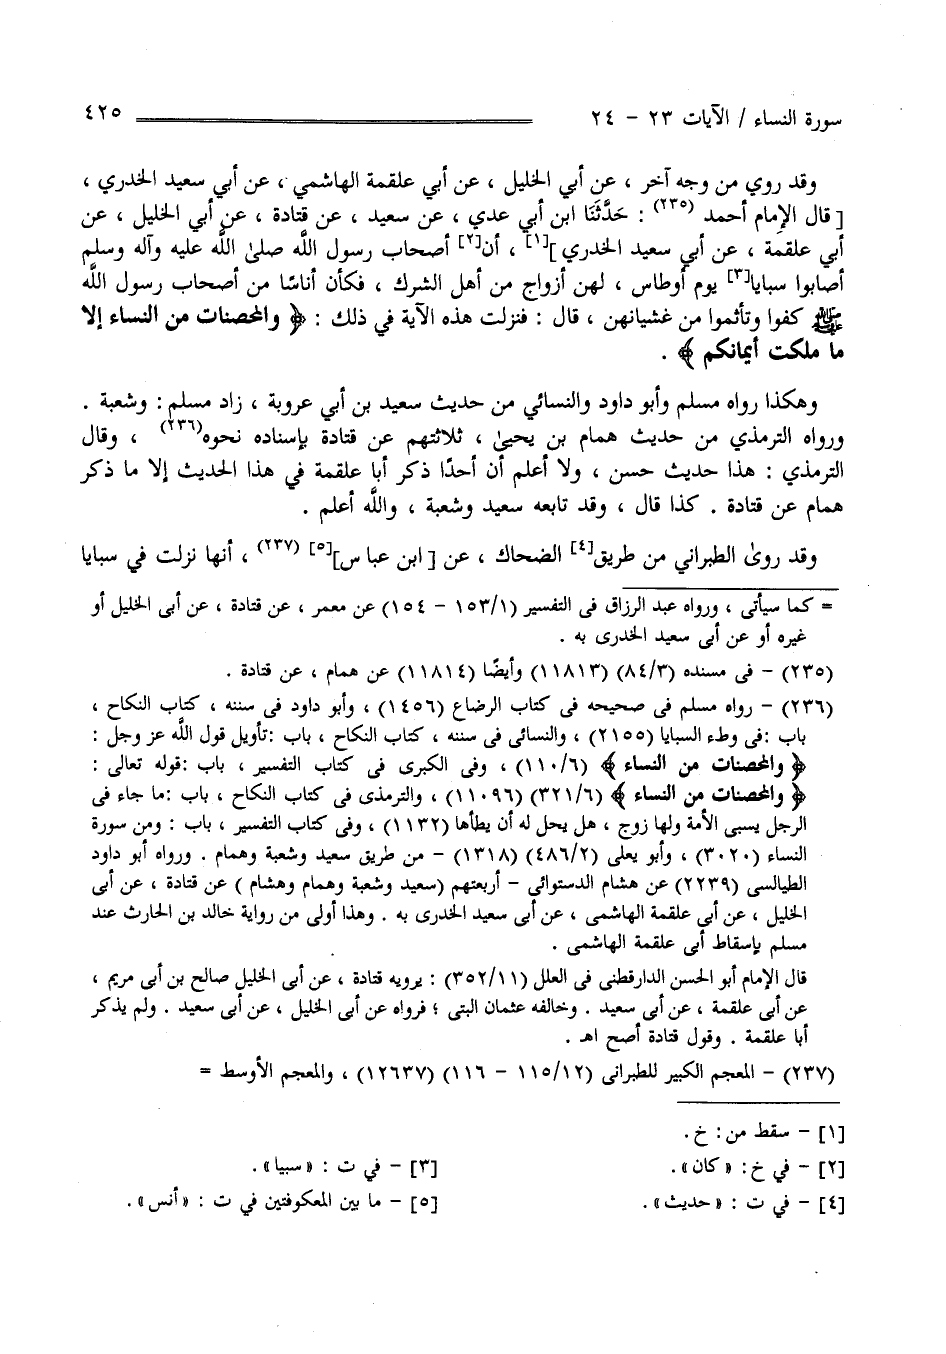 سورة النساء / الآيات ٢٣ - ٢٤ ٤٢٥
وقد روي من وجه آخر ، عن أبي الخليل ، عن أبي علقمة الهاشمي ، عن أبي سعيد الخدري ،
[ قال الإمام أحمد (٢٣٥) : حَدَّثَنَا ابن أبي عدي ، عن سعيد ، عن قتادة ، عن أبي الخليل ، عن
أبي علقمة ، عن أبي سعيد الخدري ][١] ، أن[٢] أصحاب رسول اللَّه صلىٰ اللَّه عليه وآله وسلم
أصابوا سبايا[٣] يوم أوطاس ، لهن أزواج من أهل الشرك ، فكأن أناسًا من أصحاب رسول اللَّه
ﷺ كفوا وتأثموا من غشيانهن ، قال : فنزلت هذه الآية في ذلك : ﴿ والمحصنات من النساء إلا
ما ملكت أيمانكم ﴾ .
وهكذا رواه مسلم وأبو داود والنسائي من حديث سعيد بن أبي عروبة ، زاد مسلم : وشعبة .
ورواه الترمذي من حديث همام بن يحيىٰ ، ثلاثتهم عن قتادة بإسناده نحوه(٢٣٦) ، وقال
الترمذي : هذا حديث حسن ، ولا أعلم أن أحدًا ذكر أبا علقمة في هذا الحديث إلا ما ذكر
همام عن قتادة . كذا قال ، وقد تابعه سعيد وشعبة ، واللَّه أعلم .
وقد روىٰ الطبراني من طريق[٤] الضحاك ، عن [ ابن عباس ][٥] (٢٣٧) ، أنها نزلت في سبايا
= كما سيأتى ، ورواه عبد الرزاق فى التفسير (١٥٣/١ - ١٥٤) عن معمر ، عن قتادة ، عن أبى الخليل أو
غيره أو عن أبى سعيد الخدرى به .
(٢٣٥) - فى مسنده (٨٤/٣) (١١٨١٣) وأيضًا (١١٨١٤) عن همام ، عن قتادة .
(٢٣٦) - رواه مسلم فى صحيحه فى كتاب الرضاع (١٤٥٦) ، وأبو داود فى سننه ، كتاب النكاح ،
باب :فى وطء السبايا (٢١٥٥) ، والنسائى فى سننه ، كتاب النكاح ، باب :تأويل قول اللَّه عز وجل :
﴿ والمحصنات من النساء ﴾ (١١٠/٦) ، وفى الكبرى فى كتاب التفسير ، باب :قوله تعالى :
﴿ والمحصنات من النساء ﴾ (٣٢١/٦) (١١٠٩٦) ، والترمذى فى كتاب النكاح ، باب :ما جاء فى
الرجل يسبى الأمة ولها زوج ، هل يحل له أن يطأها (١١٣٢) ، وفى كتاب التفسير ، باب : ومن سورة
النساء (٣٠٢٠) ، وأبو يعلى (٤٨٦/٢) (١٣١٨) - من طريق سعيد وشعبة وهمام . ورواه أبو داود
الطيالسى (٢٢٣٩) عن هشام الدستوائى - أربعتهم (سعيد وشعبة وهمام وهشام ) عن قتادة ، عن أبى
الخليل ، عن أبى علقمة الهاشمى ، عن أبى سعيد الخدرى به . وهذا أولى من رواية خالد بن الحارث عند
مسلم بإسقاط أبى علقمة الهاشمى .
قال الإمام أبو الحسن الدارقطنى فى العلل (٣٥٢/١١) : يرويه قتادة ، عن أبى الخليل صالح بن أبى مريم ،
عن أبى علقمة ، عن أبى سعيد . وخالفه عثمان البتى ؛ فرواه عن أبى الخليل ، عن أبى سعيد . ولم يذكر
أبا علقمة . وقول قتادة أصح اهـ .
(٢٣٧) - المعجم الكبير للطبرانى (١١٥/١٢ - ١١٦) (١٢٦٣٧) ، والمعجم الأوسط =
[١] - سقط من : خ .
[٢] - في خ : « كان » . [٣] - في ت : « سبيا » .
[٤] - في ت : « حديث » . [٥] - ما بين المعكوفتين في ت : « أنس » .